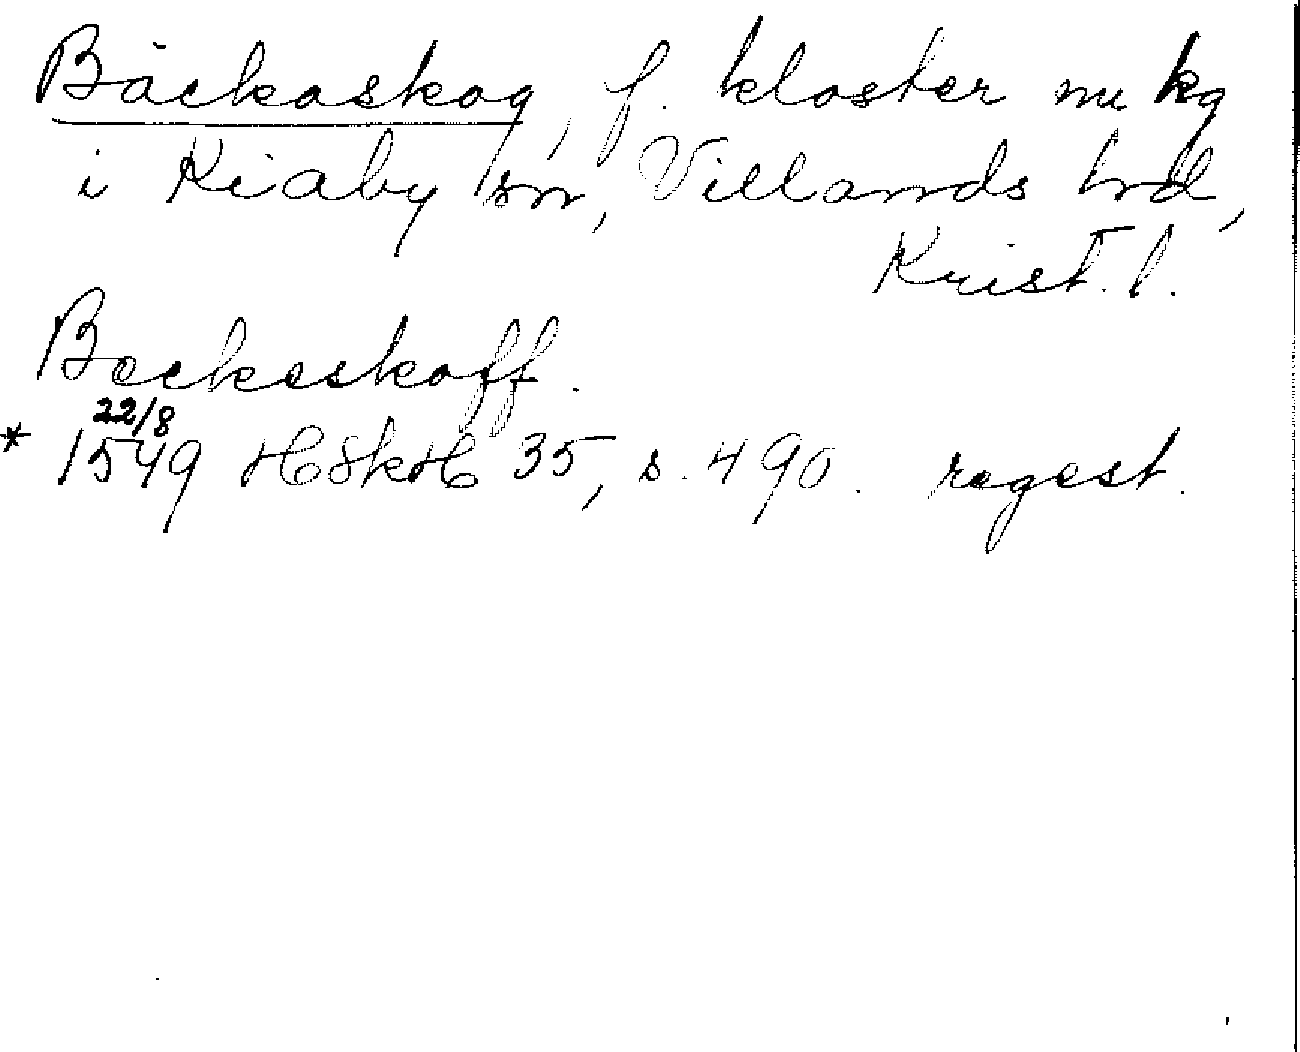 Bäckaskog, f. kloster nu kg
i Kiaby sn, Villands hd,
Krist. l.
Beckeskoff.
22/8
* 1549 HSkH 35, s. 490. regest.